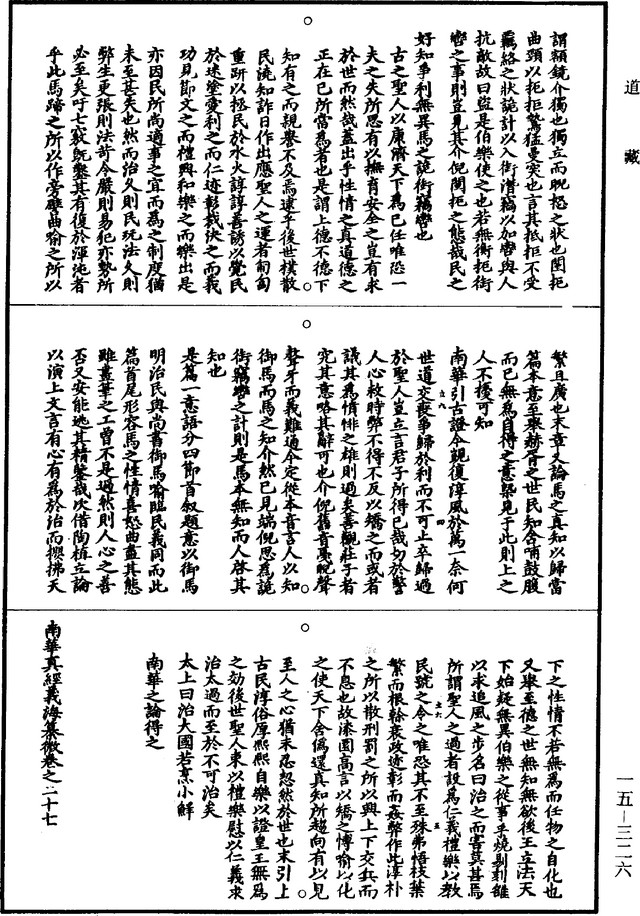 道藏
謂額鏡介獨也獨立而睨怒之狀也闉扼
曲頸以扼拒鷙猛曼突也言其抵拒不受
羈絡之狀詭計以入銜潛竊以加轡與人
抗敵故曰盜是伯樂使之也若無衡扼銜
轡之事則豈見其介倪闉扼之態哉民之
好知爭利無異馬之詭銜竊轡也
古之聖人以康濟天下為已任唯恐一
夫之失所思有以撫育安全之豈有求
於世而然哉蓋出乎性情之真道德之
正在已所當為者也是謂上德不德下
知有之而親譽不及焉逮乎後世樸散
民澆知詐日作出應聖人之運者匍匐
重趼以拯民於水火諄諄善誘以覺民
於迷塗愛利之而仁迹彰裁決之而義
功見節文之而禮興和樂之而樂出是
亦因民所尚適事之宜而為之制度猶
未至甚失也然而治久則民玩法久則
弊生更張則法苛令嚴則易犯亦勢所
必至矣吁七竅既鑿其有復於渾沌者
乎此馬蹄之所以作旁礫曲喻之所以
繁且廣也末章又論馬之真知以歸當
篇本意至舉赫胥之世民知含哺鼓腹
而已無為自得之意槩見于此則上之
人不擾可知
南華引古證今覬復淳風於萬一奈何
世道交喪爭歸於利而不可止卒歸過
於聖人豈立言君子所得已哉勿於警
人心救時弊不得不反以矯之而或者
議其為憤悱之雄則過矣善觀莊子者
究其意略其辭可也介倪舊音戛睨聲
聱牙而義難通今定從本音言人以知
御馬而馬之知介然已見端倪思為詭
銜竊轡之計則是馬本無知而人啓其
知也
是篇一意語分四節首叙題意以御馬
明治民與尚書御馬喻臨民義同而此
篇首尾形容馬之性情喜怒曲盡其態
雖畫筆之工曾不是過然則人心之善
否又安能逃其精鑒哉次借陶植立論
以演上文言有心有為於治而攖拂天
下之性情不若無為而任物之自化也
又舉至德之世無知無欲後王立法天
下始疑無異伯樂之從事乎燒剔刻雒
以求追風之步名曰治之而害莫甚焉
所謂聖人之過者設為仁義禮樂以教
民號之令之唯恐其不至殊弗悟枝葉
繁而根榦衰政迹彰而姦弊作此淳朴
之所以散刑罰之所以興上下交兵而
不息也故漆園高言以矯之慱喻以化
之使天下舍僞還真知所趨向有以見
至人之心猶未忍忽然於世也末引上
古民淳俗厚熙熙自樂以證皇王無為
之効後世聖人束以禮樂慰以仁義求
治太過而至於不可治矣
太上曰治大國若烹小鮮
南華之論得之
南華真經義海纂微卷之二十七
一五－三二六